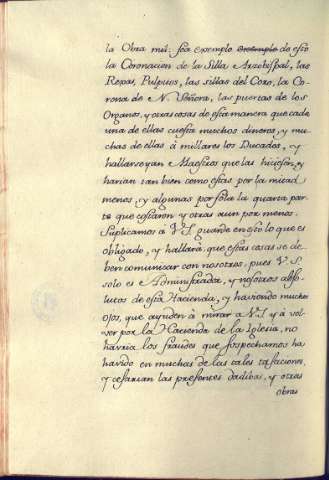 la Obra mil: sea exemplo de esto
la Coronacion de la Silla Arzobispal, las
Rexas, Pulpitos, las sillas del Coro, la Co-
rona de N. Señora, las puertas de los
Organos, y otras cosas de esta manera que cada
una de ellas cuesta muchos dineros, y mu-
chas de ellas à millares los Ducados, y
hallarseyan Maestros que las hiciesen, y
harian tan bien como estas por la mitad
menos, y algunas por sola la quarta par-
te que costaron y otras aun por menos.
Suplicamos a V.S. guarde en esto lo que es
obligado, y hallará que estas cosas se de-
ben comunicar con nosotros, pues V.S.
solo es Administrador, y nosotros abso-
lutos de esta Hacienda, y haviendo muchos
ojos, que ayuden à mirar a V.S. y à vol-
ver por la Hacienda de la Iglesia, no
havria los fraudes que sospechamos ha
havido en muchas de las tales tasaciones,
y cesarian las presentes dadibas, y otras
obras